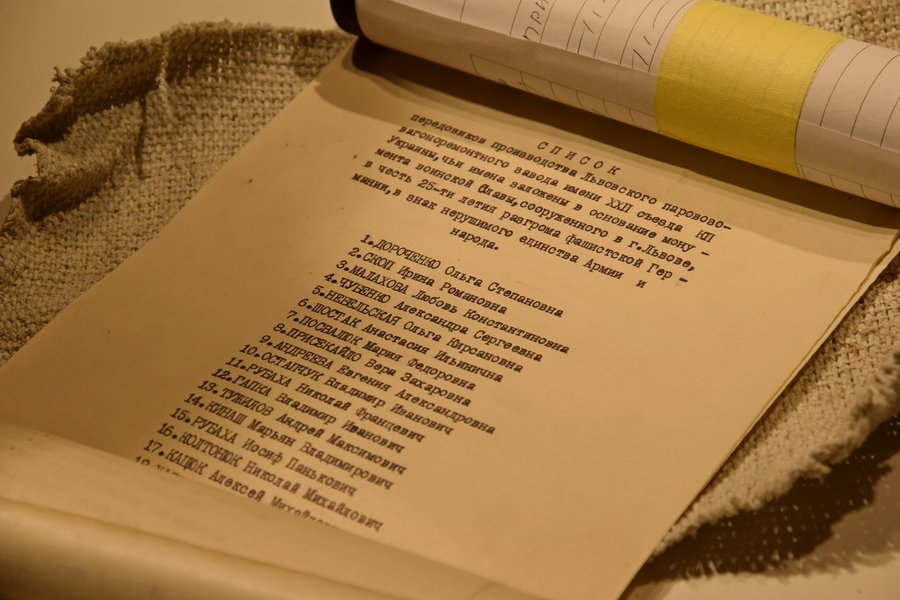 СПИСОК
передовиков производства Львовского паровозо-
вагоноремонтного завода имени XXII съезда КП
Украины, чьи имена заложены в основание мону -
мента воинской Славы, сооруженного в г.Львове,
в честь 25-ти летия разгрома фашистской Гер -
мании, в знак нерушимого единства Армии и
народа.
1.ДОРОЧЕНКО Ольга Степановна
2.СКОП Ирина Романовна
3.МАЛАХОВА Любовь Константиновна
4.ЧУБЕНКО Александра Сергеевна
5.НЕБЕЛЬСКАЯ Ольга Кирсановна
6.ШОСТАК Анастасия Ильинична
7.ПОСВАЛЮК Мария Федоровна
8.ПРИСЕКАЙЛО Вера Захаровна
9.АНДРЕЕВА Евгения Александровна
10.ОСТАПЧУК Владимир Иванович
11.РУБАХА Николай Францевич
12.ГАПКА Владимир Иванович
13.ТУЖИКОВ Андрей Максимович
14.КИНАШ Марьян Владимирович
15.РУБАХА Иосиф Панькович
16.КОЛТОНЮК Николай Михайлович
17.КАЦЮК Алексей